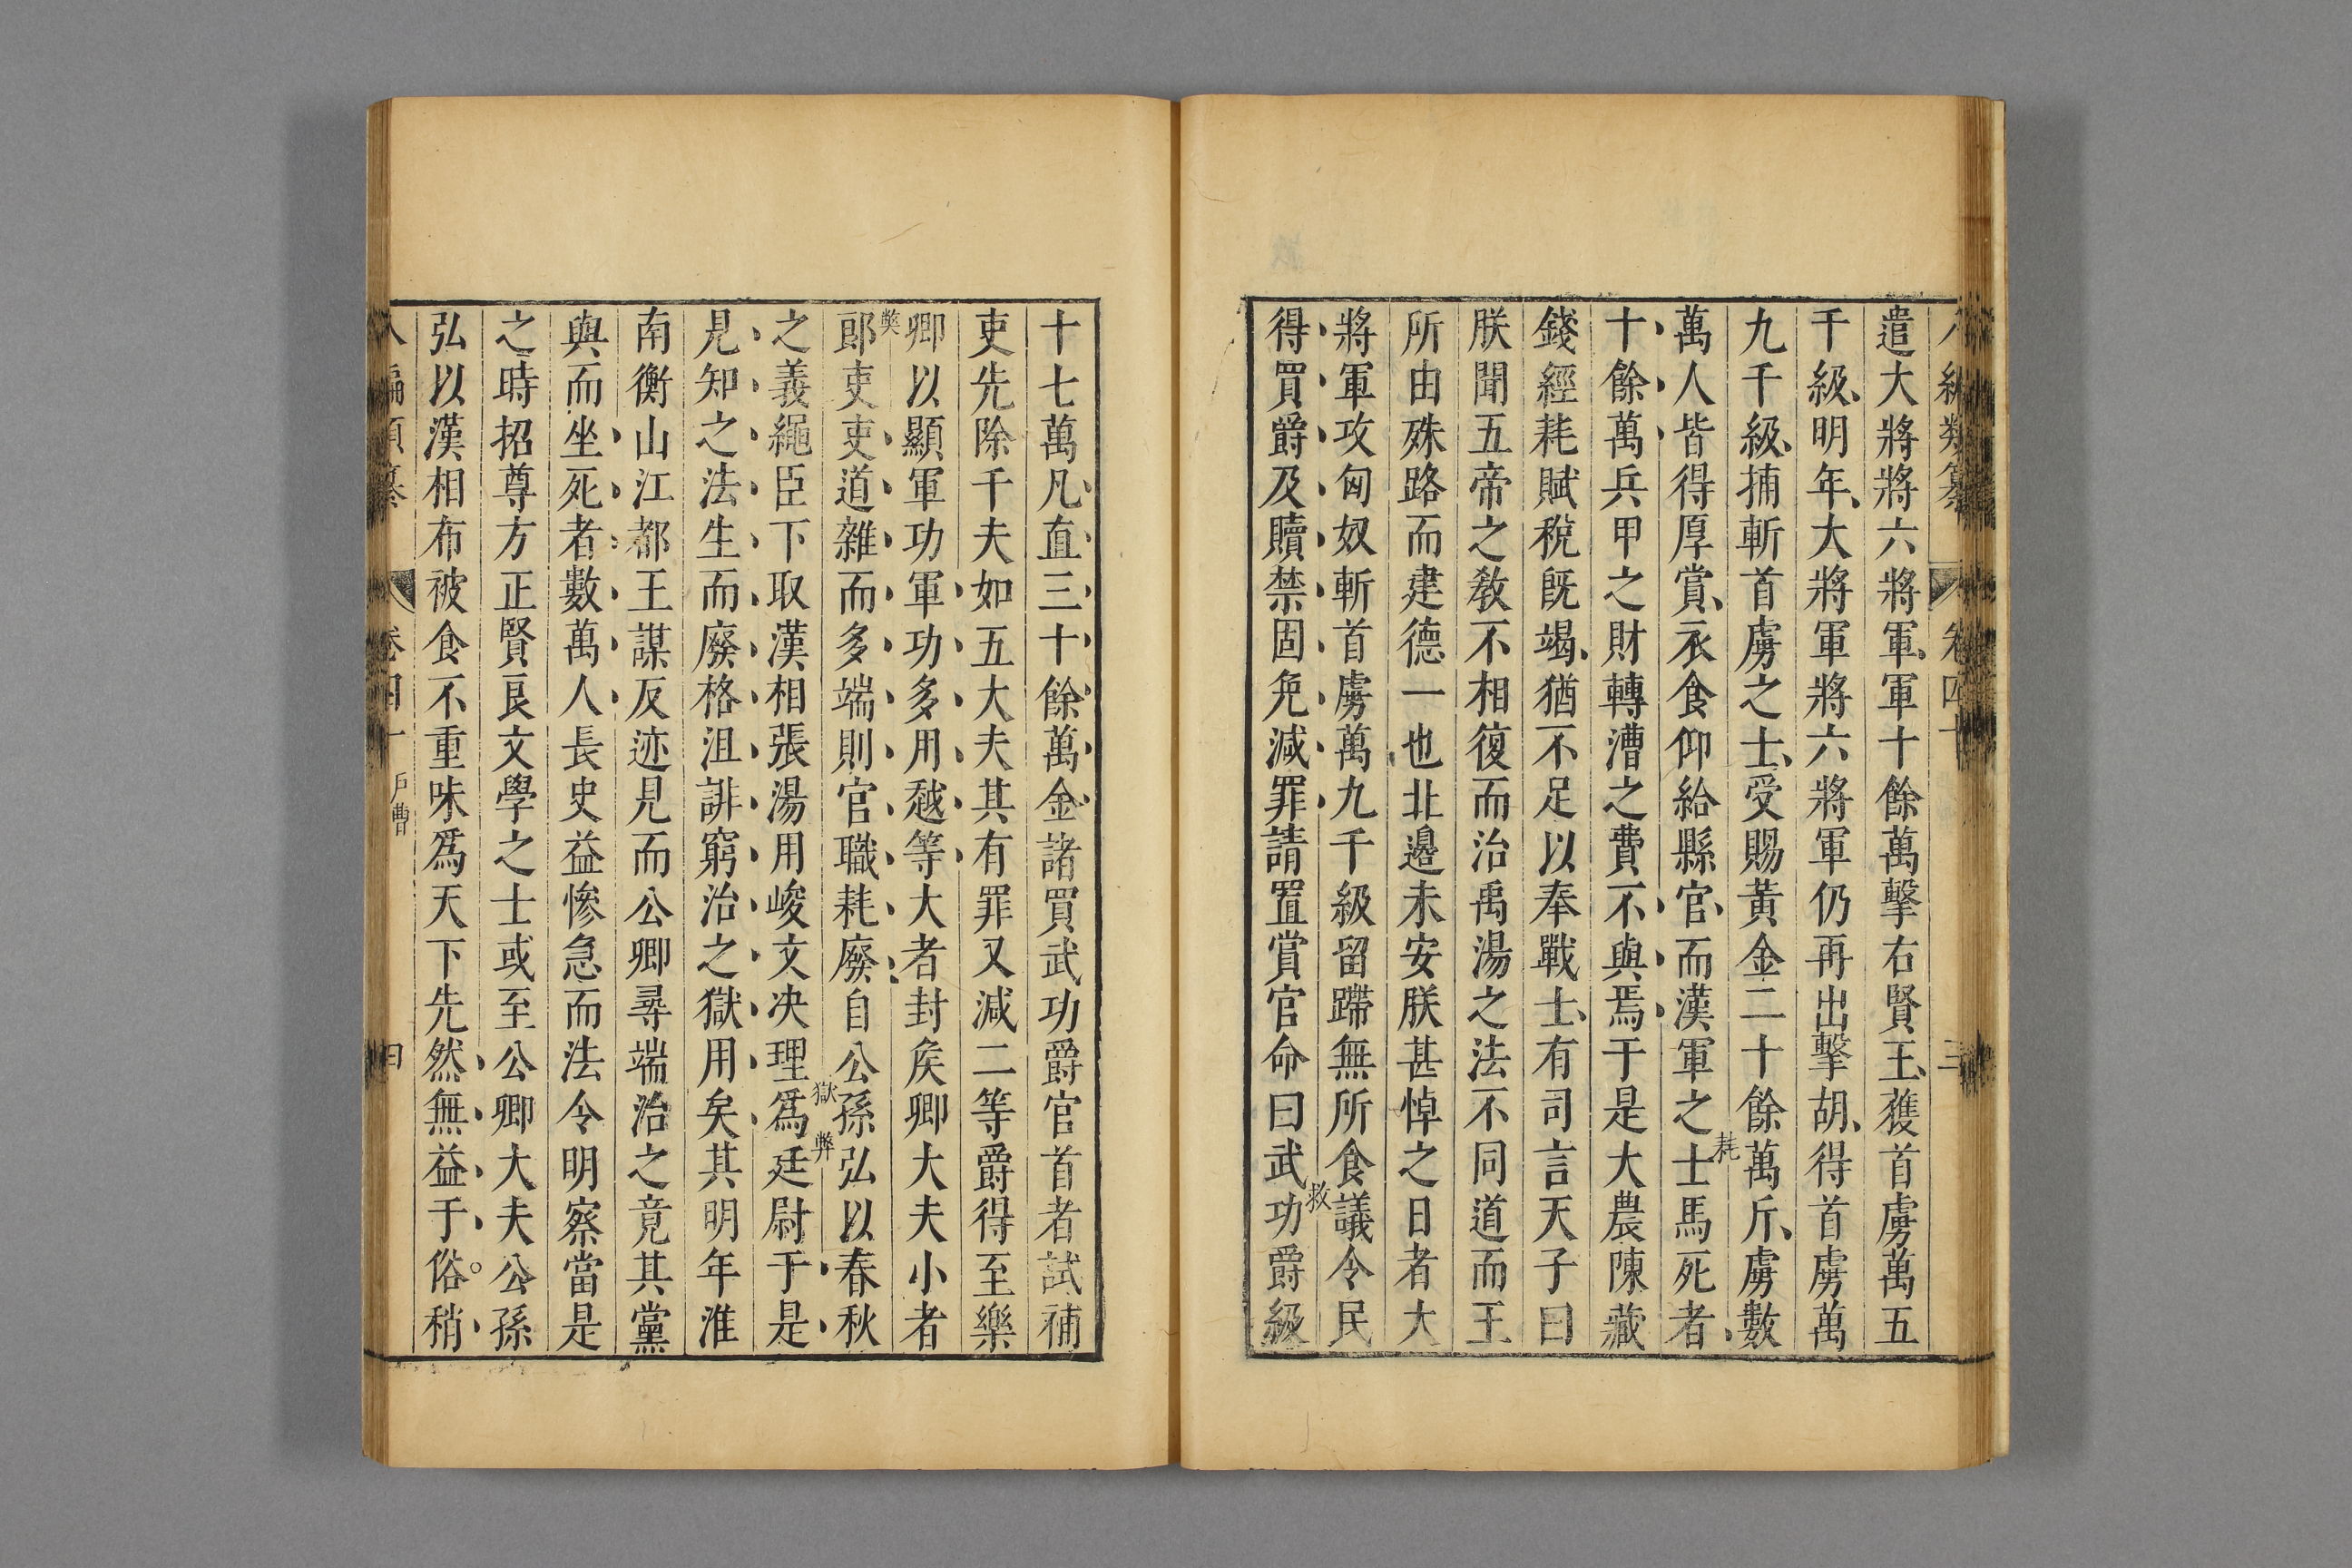 遣大將將六將軍軍十餘萬擊右賢王獲首虜萬五
千級明年大將軍將六將軍仍再出擊胡得首虜萬
九千級捕斬首虜之士受賜黃金二十餘萬斤虜數
萬人皆得厚賞衣食仰給縣官而漢軍之士馬死者
耗
十餘萬兵甲之財轉漕之費不與焉于是大農陳藏
錢經耗賦稅旣竭猶不足以奉戰士有司言天子曰
朕聞五帝之敎不相復而治禹湯之法不同道而王
所由殊路而建德一也北邊未安朕甚悼之日者大
將軍攻匈奴斬首虜萬九千級留蹛無所食議令民
救
得買爵及贖禁固免減罪請置賞官命曰武功爵級
十七萬凡直三十餘萬金諸買武功爵官首者試補
吏先除千夫如五大夫其有罪又減二等爵得至樂
卿以顯軍功軍功多用越等大者封矦卿大夫小者
弊
郎吏吏道雜而多端則官職耗廢自公孫弘以春秋
獄弊
之義繩臣下取漢相張湯用峻文决理爲廷尉于是
見知之法生而廢格沮誹窮治之獄用矣其明年淮
南衡山江都王謀反迹見而公卿尋端治之竟其黨
與而坐死者數萬人長史益慘急而法令明察當是
之時招尊方正賢良文學之士或至公卿大夫公孫
弘以漢相布被食不重味爲天下先然無益于俗。稍
八編類纂 卷四十 戶曹 四